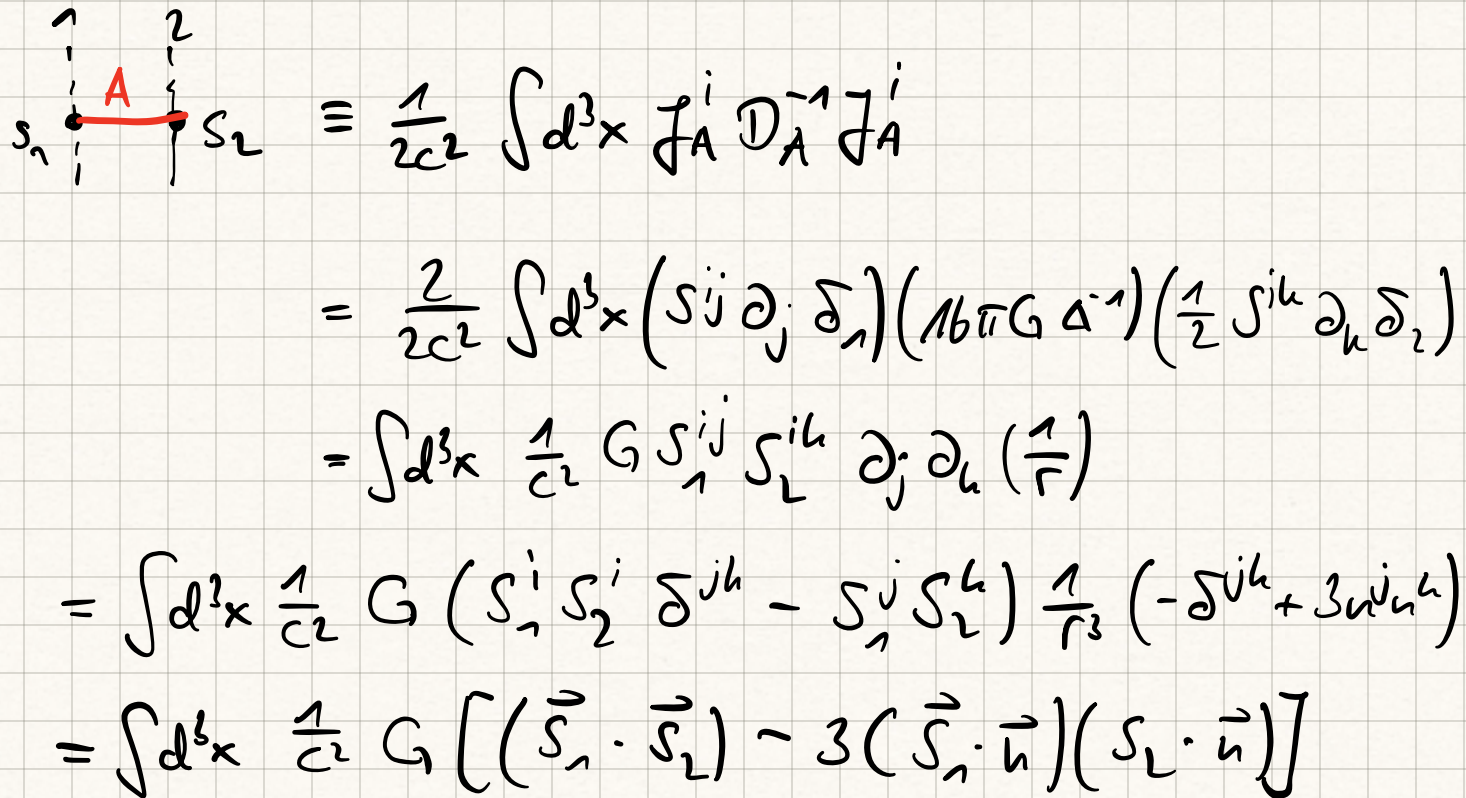 1 2
A
S_1 S_2 ≡ \frac{1}{2c^2} ∫d^3x J_A^i D_A^{-1} J_A^i
= \frac{2}{2c^2} ∫d^3x (S^{ij} ∂_j δ_1)(16πG Δ^{-1})(\frac{1}{2} S^{jk} ∂_k δ_2)
= ∫d^3x \frac{1}{c^2} G S_1^{ij} S_2^{ik} ∂_j ∂_k (\frac{1}{r})
= ∫d^3x \frac{1}{c^2} G (S_1^i S_2^i δ^{jk} - S_1^j S_2^k) \frac{1}{r^3} (-δ^{jk} + 3n^j n^k)
= ∫d^3x \frac{1}{c^2} G [(\vec{S}_1 · \vec{S}_2) - 3(\vec{S}_1 · \vec{n})(S_2 · \vec{n})]